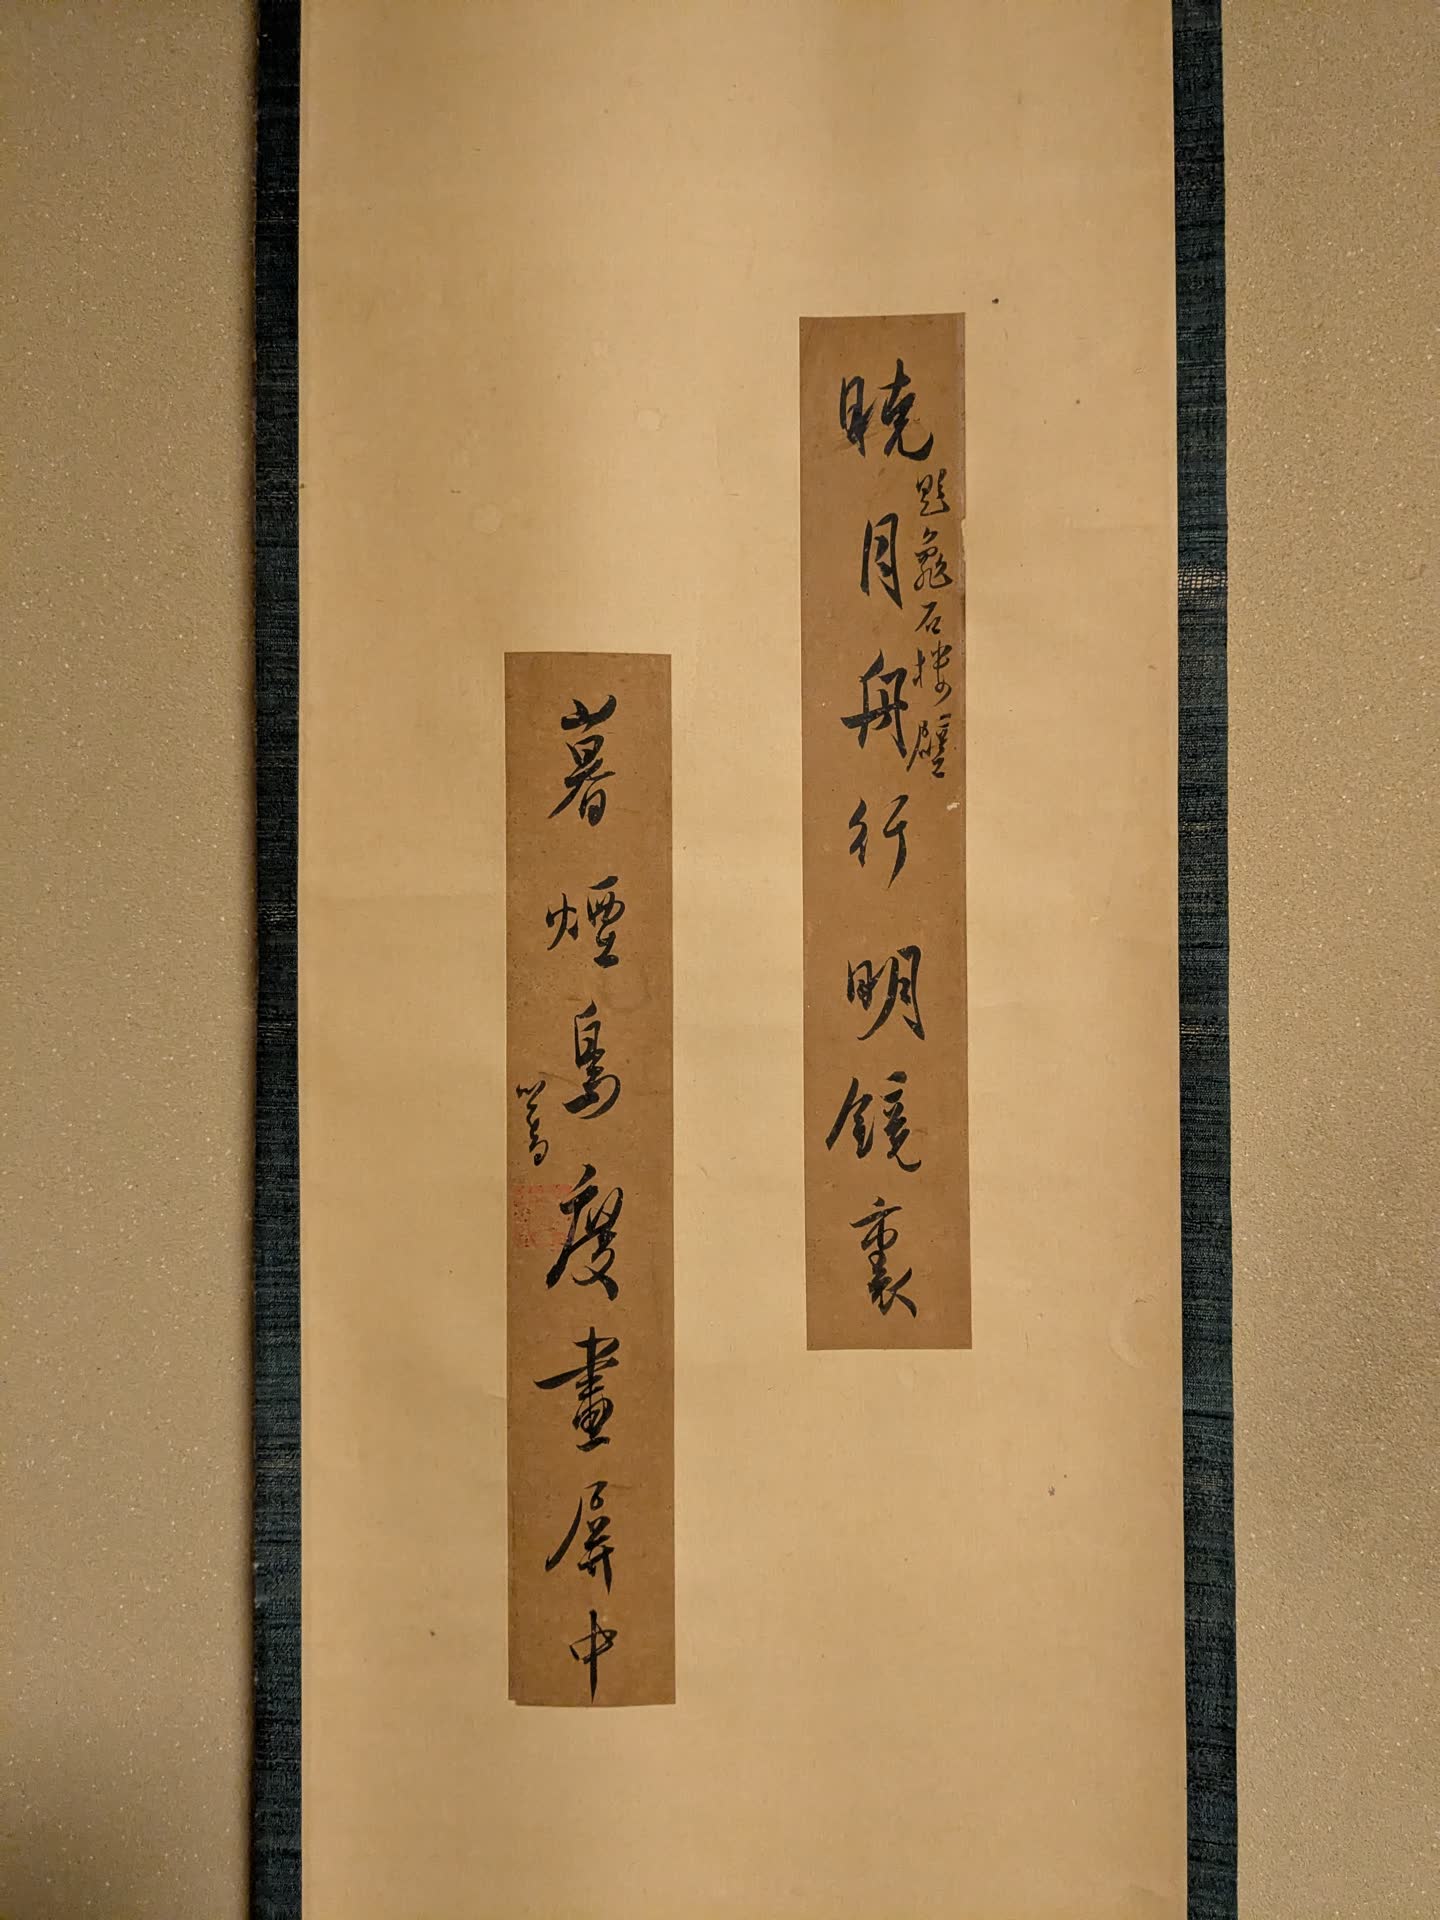 暁月舟行明鏡裏
題龜石楼壁
暮煙鳥度畫屏中